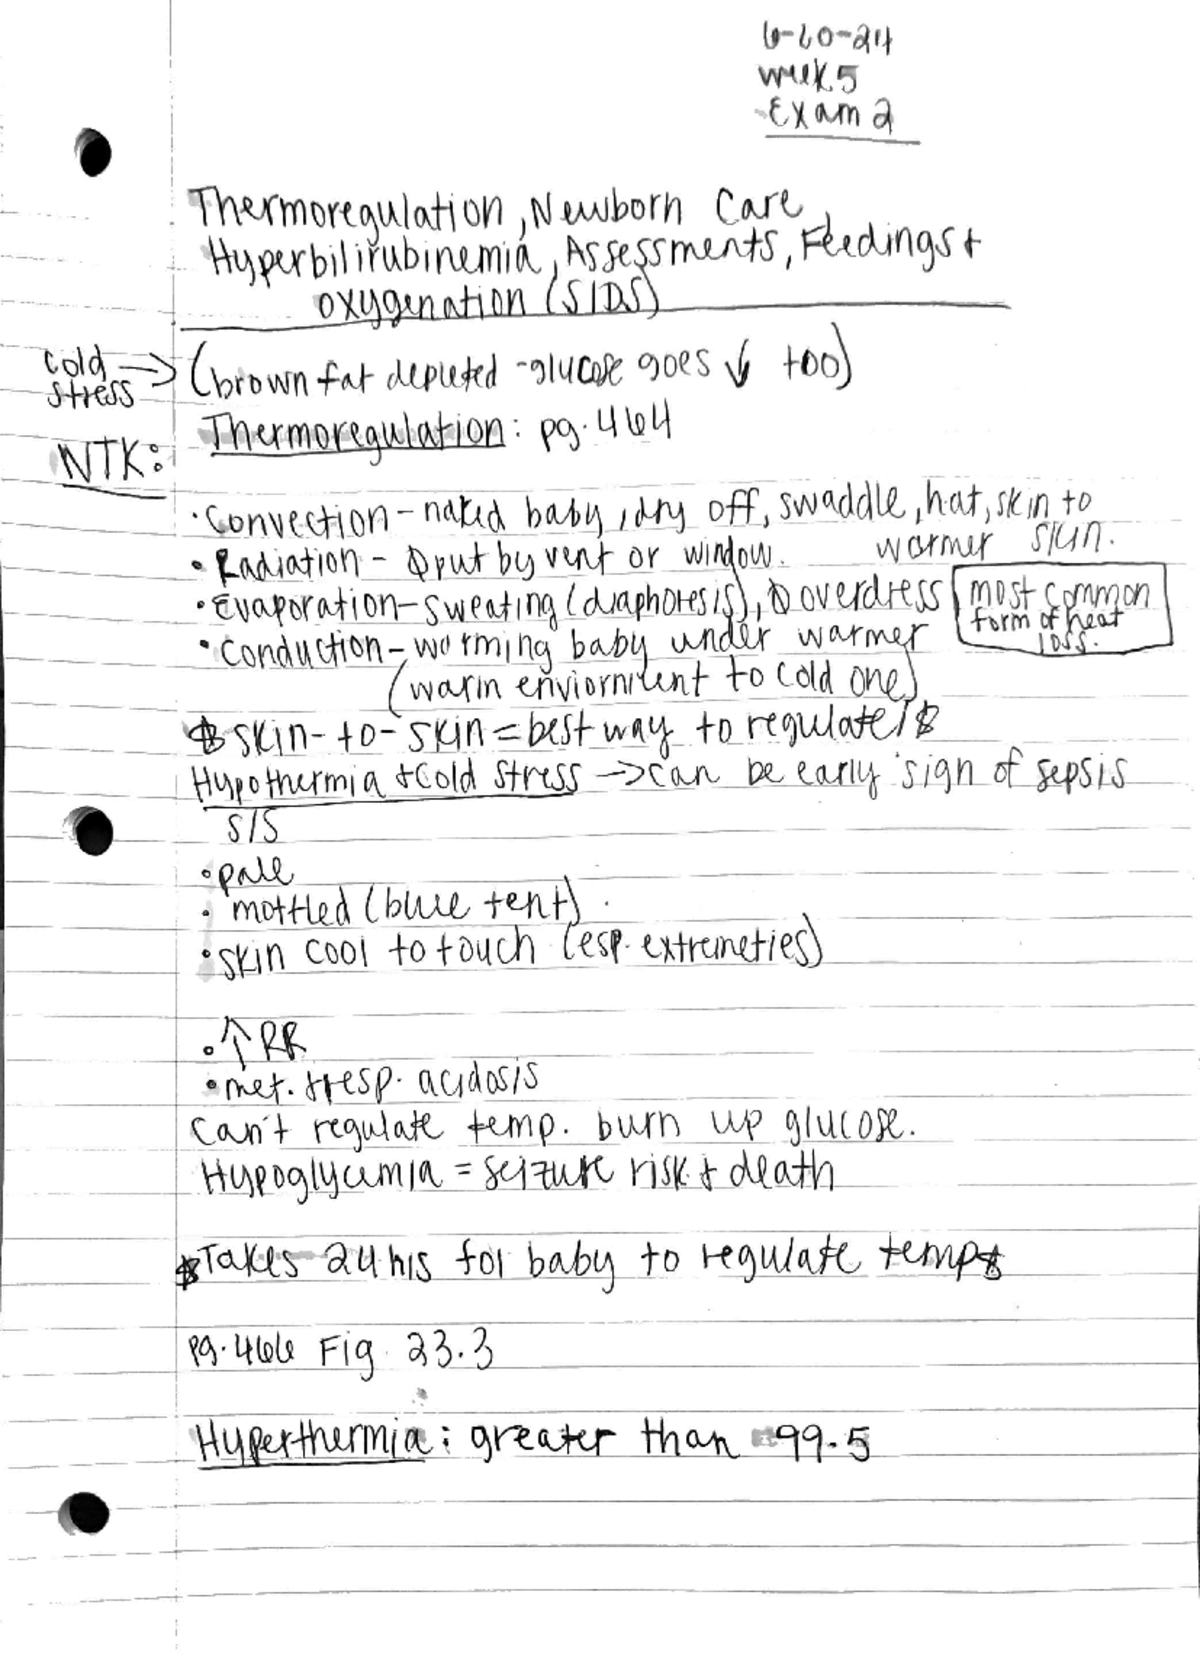 6-20-24
week 5
Exam 2
Thermoregulation, Newborn Care,
Hyperbilirubinemia, Assessments, Feedings +
oxygenation (SIDS)
cold stress → (brown fat depleted - glucose goes ↓ too)
Thermoregulation: pg. 464
NTK:
• Convection - naked baby, dry off, swaddle, hat, skin to
• Radiation - put by vent or window. warmer skin.
• Evaporation - sweating (diaphoresis), overdress most common form of heat loss.
• Conduction - worming baby under warmer
(warm enviornment to cold one)
skin-to-skin = best way to regulate
Hypothermia + Cold Stress → can be early sign of sepsis
S/S
• pale
• mottled (blue tent)
• skin cool to touch (esp. extremeties)
• ↑ RR
• met. + resp. acidosis
Can't regulate temp. burn up glucose.
Hypoglycemia = seizure risk + death
Takes 24 hrs for baby to regulate temp
pg. 466 Fig 23.3
Hyperthermia: greater than 99.5